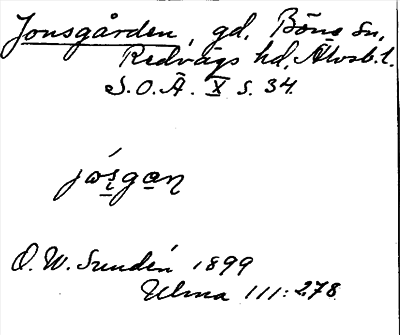 Jonsgården, gd, Böne sn,
Redvägs hd, Älvsb. l.
S.O.Ä. X s. 34.
O. W. Sundén 1899
Ulma 111:278.